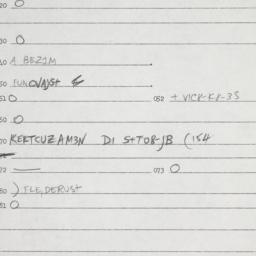 20 O
30 O
40 A BEZIM
50
51 O 052 + VICR-KR-3S
60 O
70 KERTCUZAM3N DI S+TOB-JB (154
72 — 073 O
80 ) FLE,DERUS+
81 O